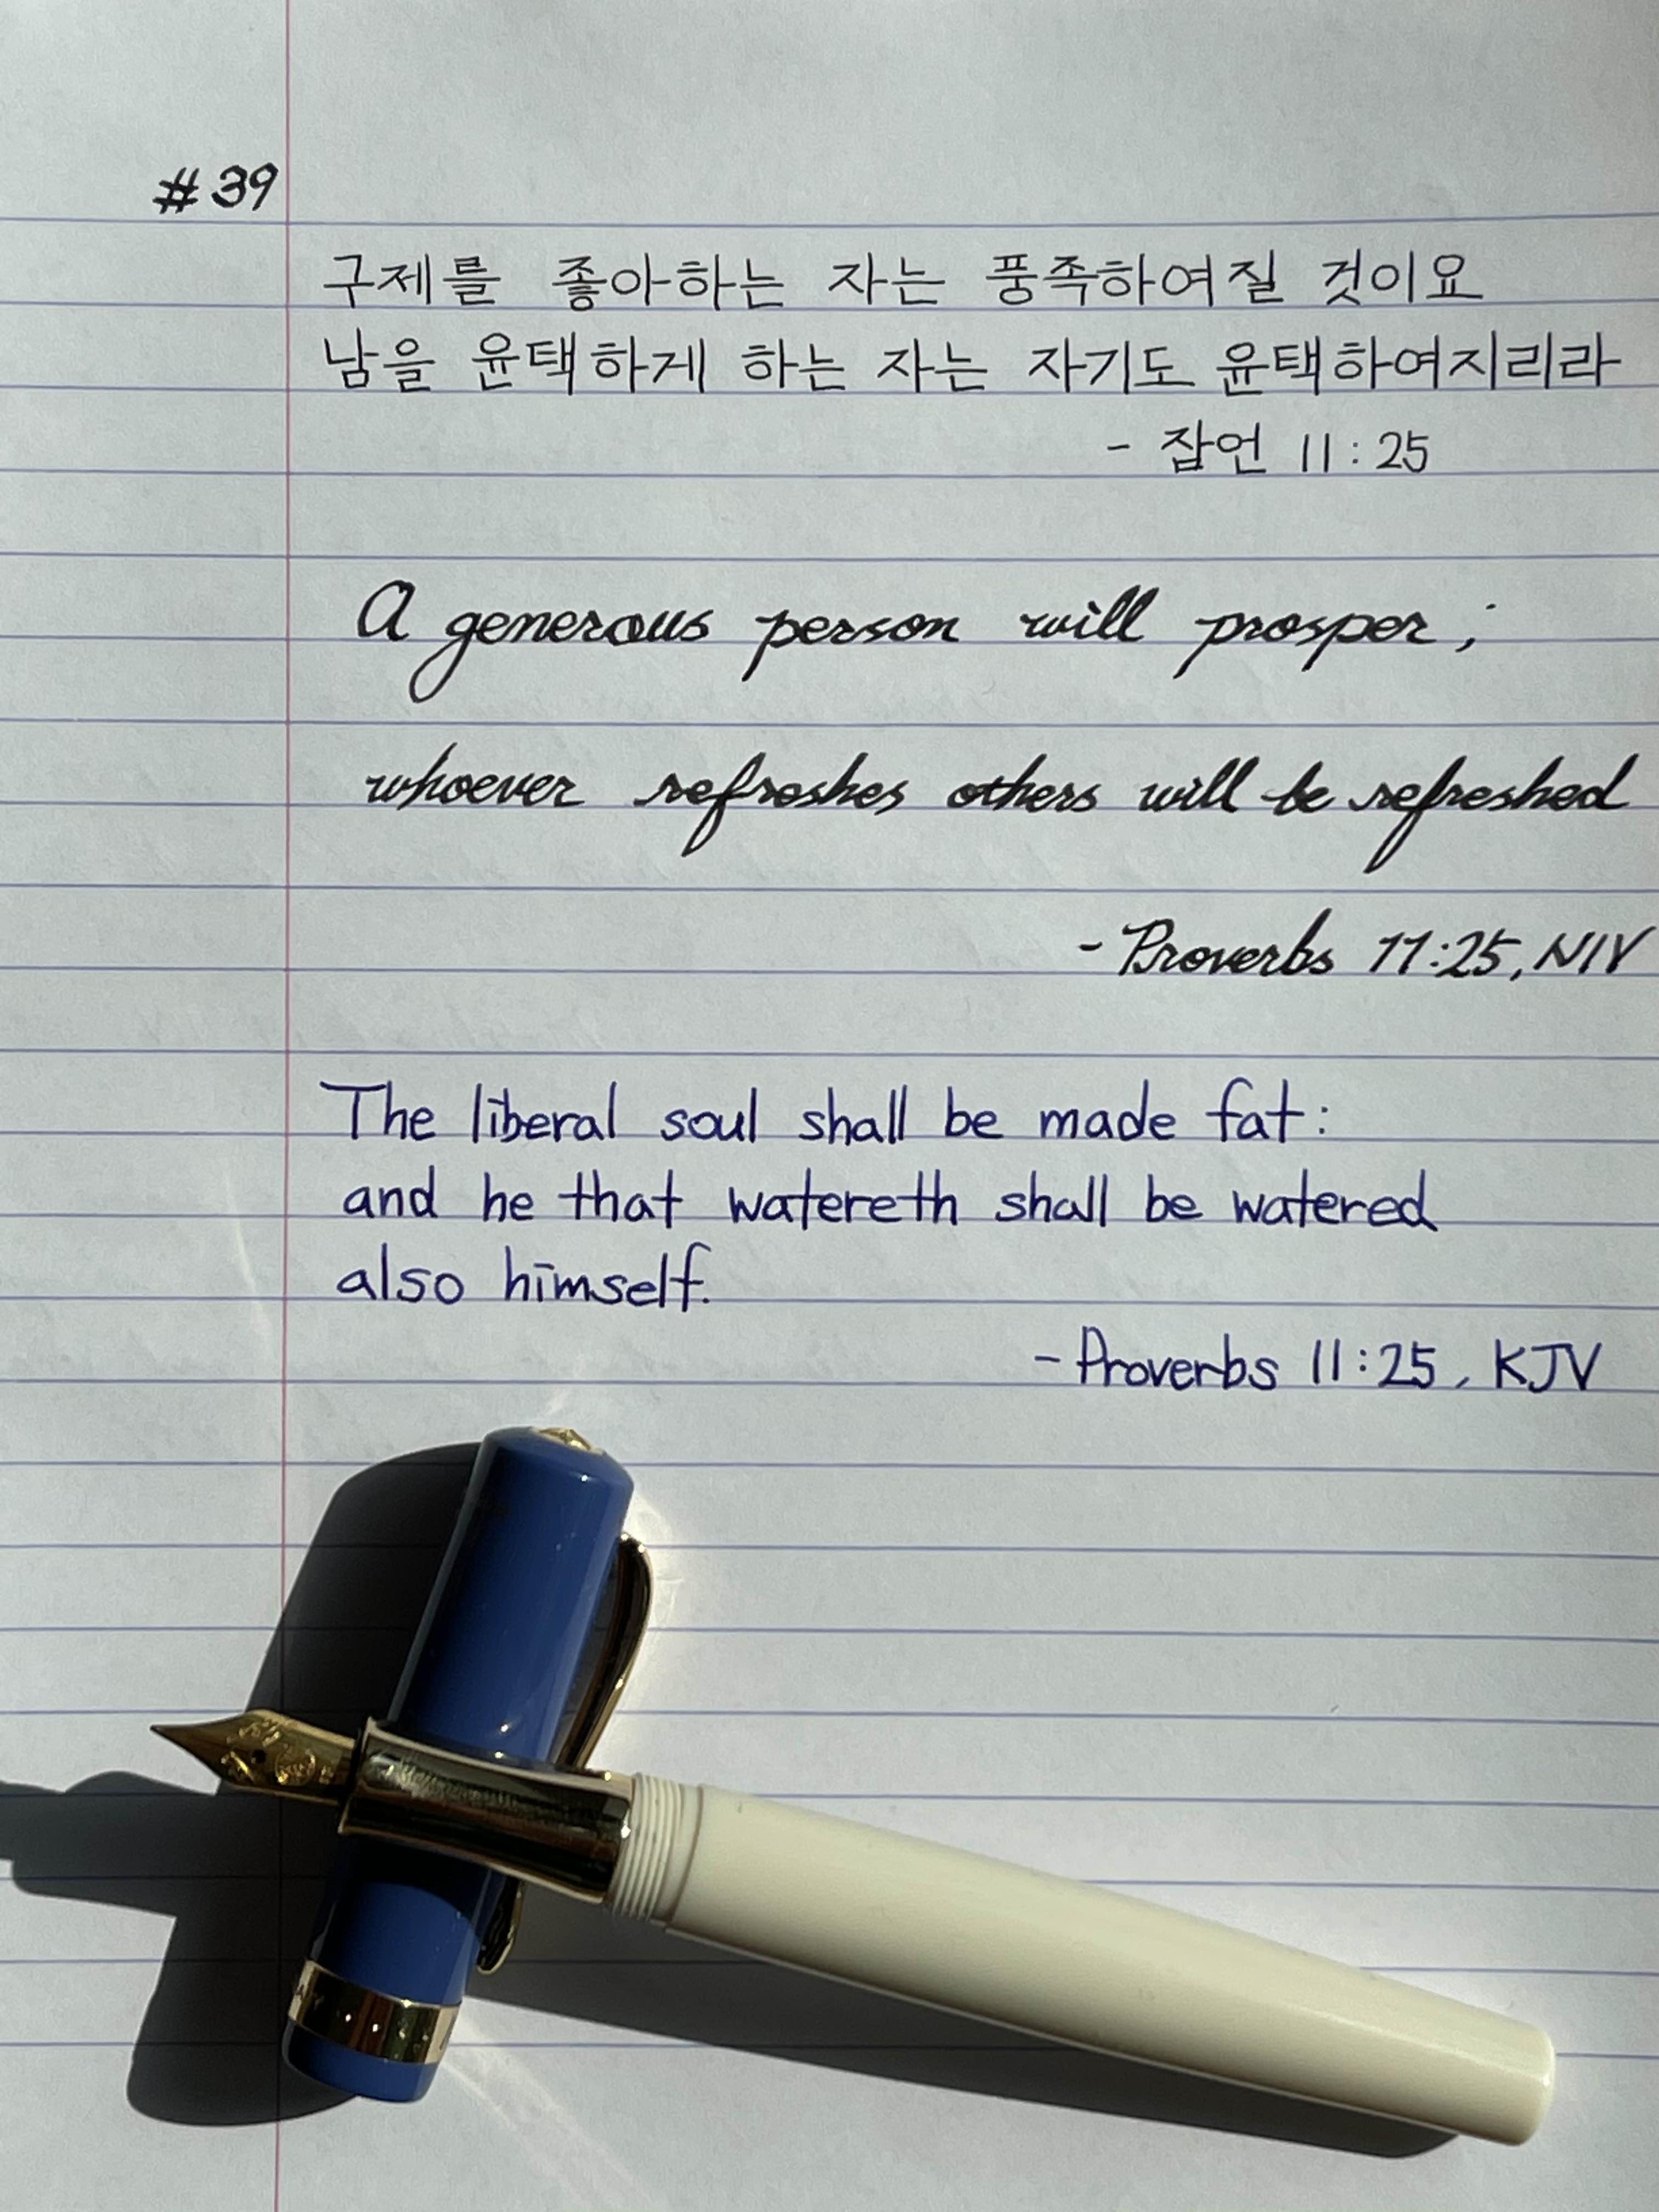 #39
구제를 좋아하는 자는 풍족하여질 것이요
남을 윤택하게 하는 자는 자기도 윤택하여지리라
- 잠언 11:25
A generous person will prosper;
whoever refreshes others will be refreshed
- Proverbs 11:25, NIV
The liberal soul shall be made fat:
and he that watereth shall be watered
also himself.
- Proverbs 11:25, KJV